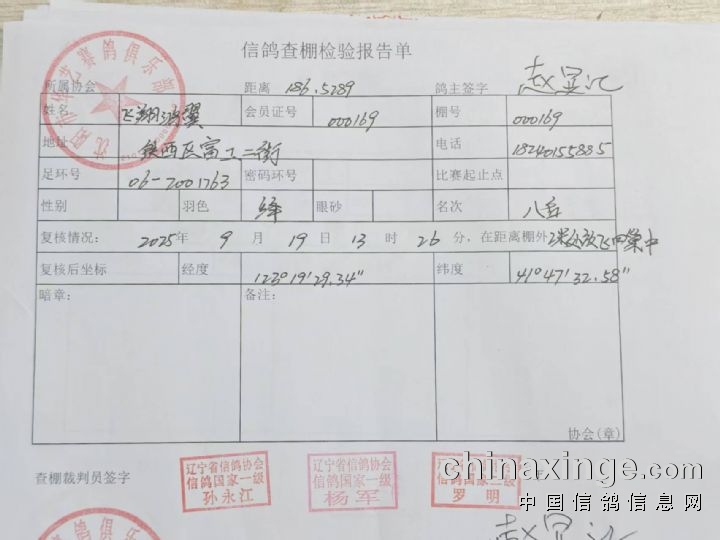 信鸽查棚检验报告单
所属协会 距离 186.5289 鸽主签字 赵显汇
姓名 飞翔 翼 会员证号 000169 棚号 000169
地址 铁西区富工二街 电话 18240155885
足环号 06-2001763 密码环号 比赛起止点
性别 羽色 绛 眼砂 名次 八百
复核情况: 2025年 9 月 19 日 13 时 26 分,在距离棚外2米处放飞回集中
复核后坐标 经度 123°19'29.34" 纬度 41°47'32.58"
暗章: 备注:
协会(章)
查棚裁判员签字
辽宁省信鸽协会
信鸽国家一级
孙永江
辽宁省信鸽协会
信鸽国家一级
杨军
辽宁省信鸽协会
信鸽国家一级
罗明
chinaxinge.com
中国信鸽信息网
赵显汇